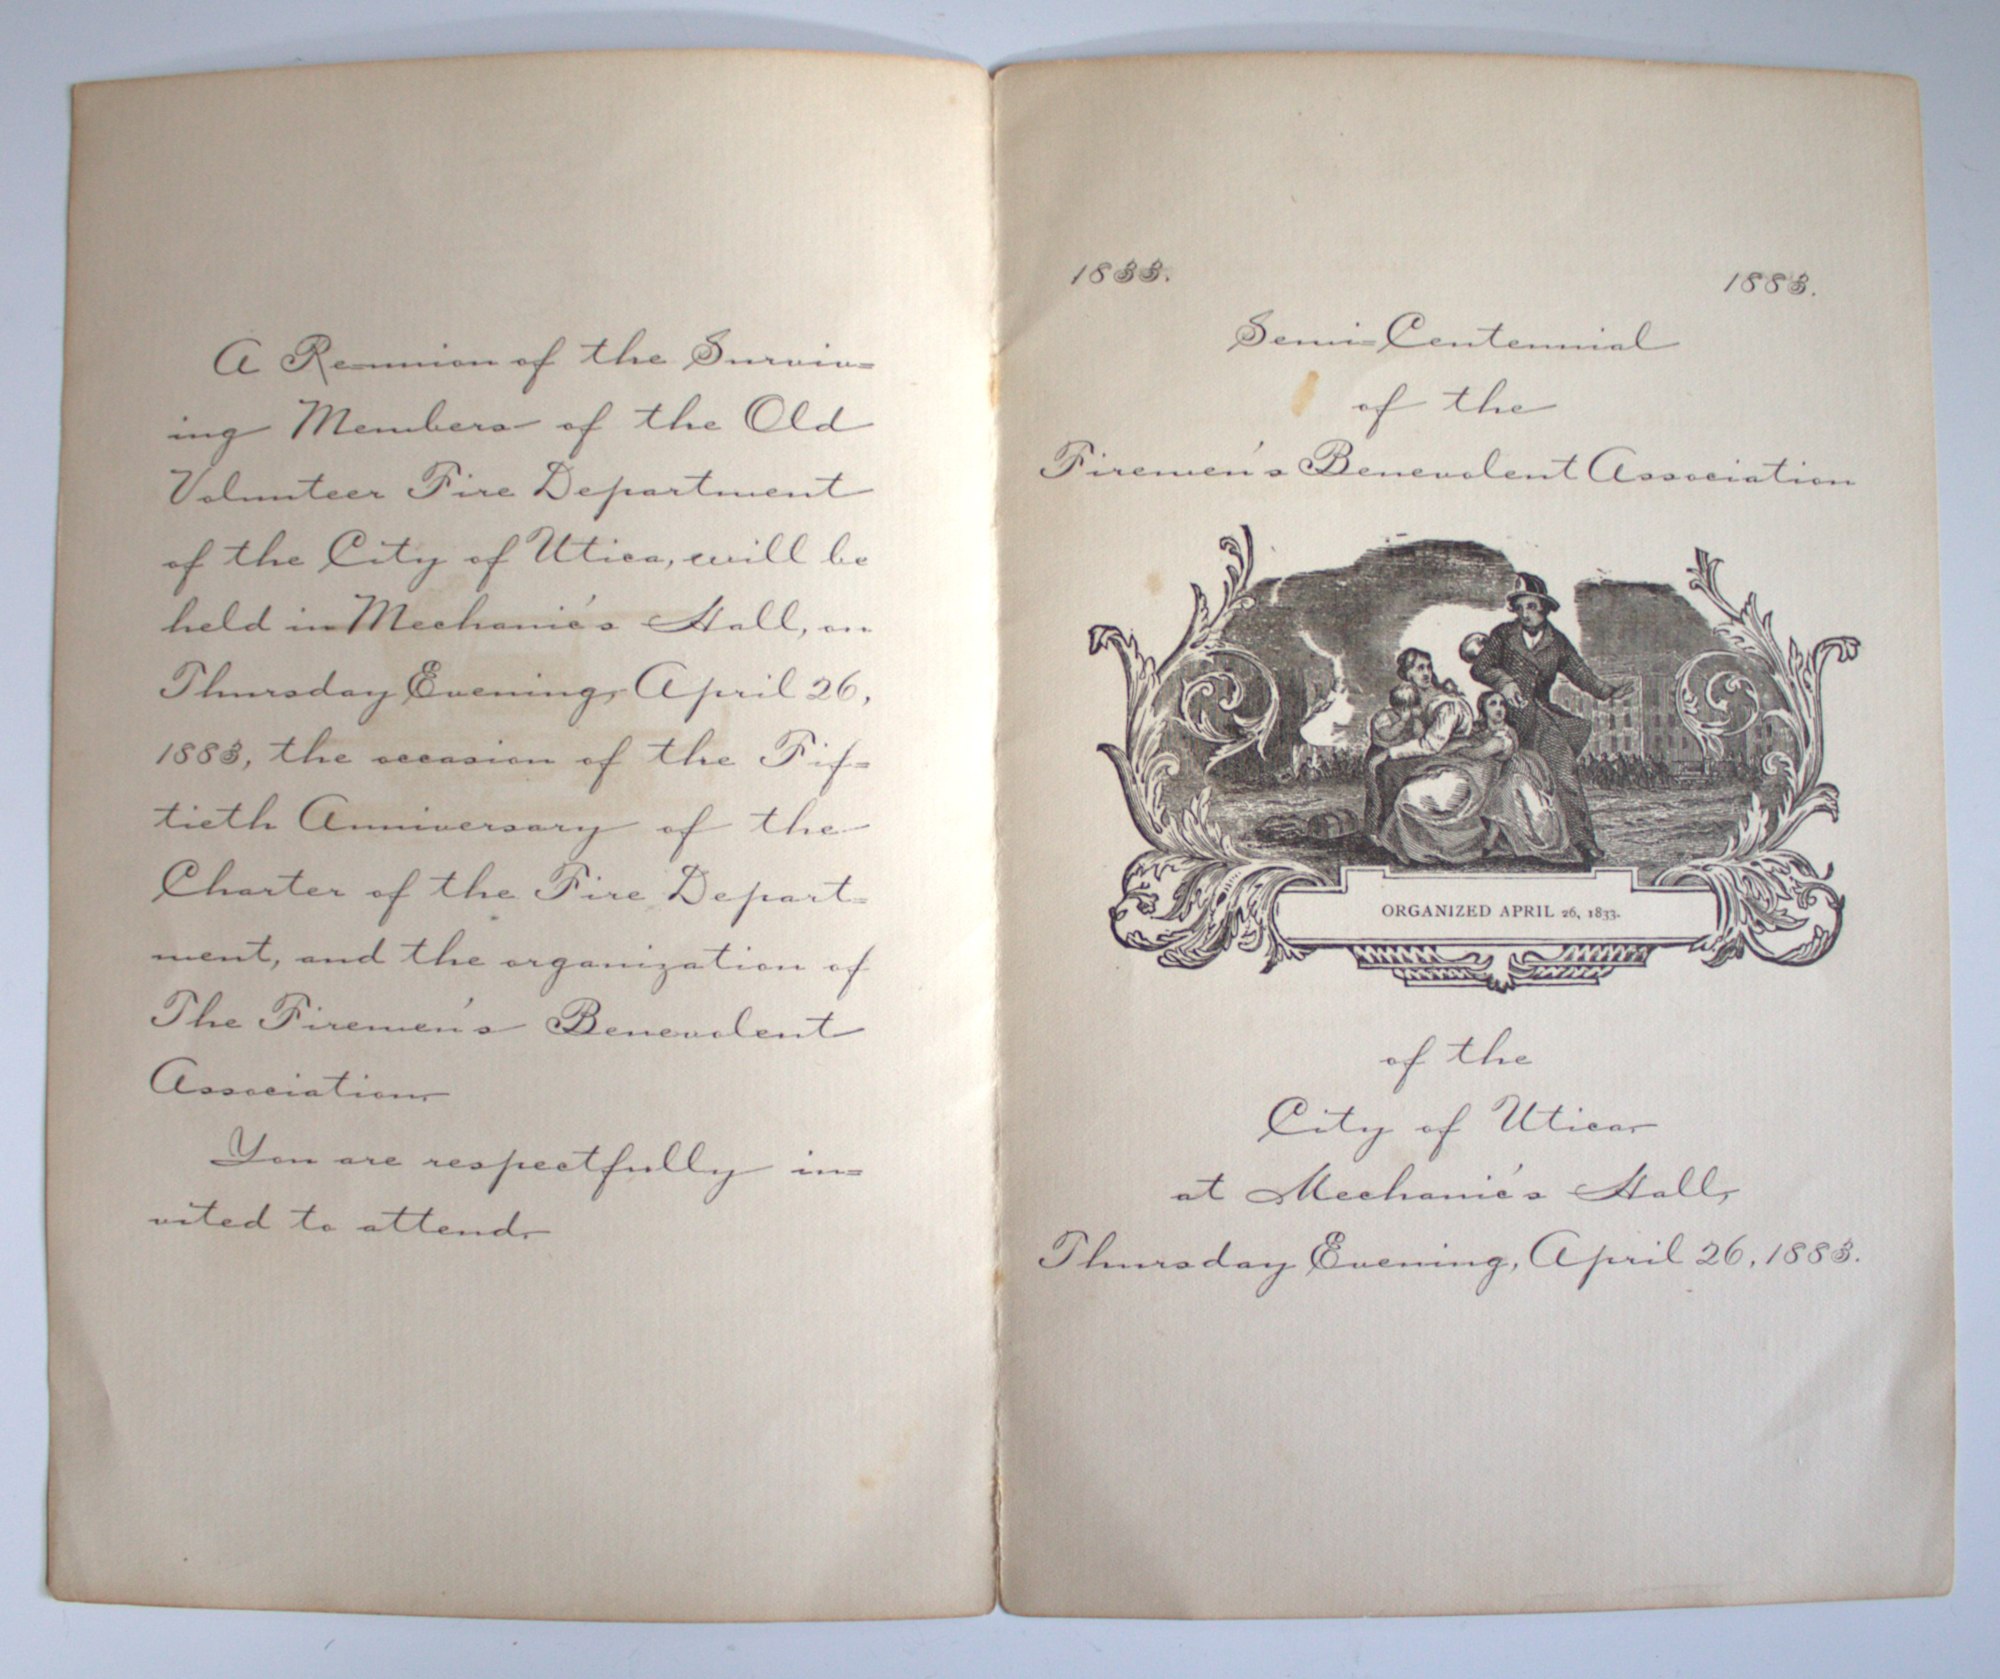 A Reunion of the Surviv=
ing Members of the Old
Volunteer Fire Department
of the City of Utica, will be
held in Mechanic's Hall, on
Thursday Evening, April 26,
1883, the occasion of the Fif=
tieth Anniversary of the
Charter of the Fire Depart=
ment, and the organization of
The Firemen's Benevolent
Association.
You are respectfully in=
vited to attend.
1833. 1883.
Semi=Centennial
of the
Firemen's Benevolent Association
ORGANIZED APRIL 26, 1833.
of the
City of Utica
at Mechanic's Hall,
Thursday Evening, April 26, 1883.